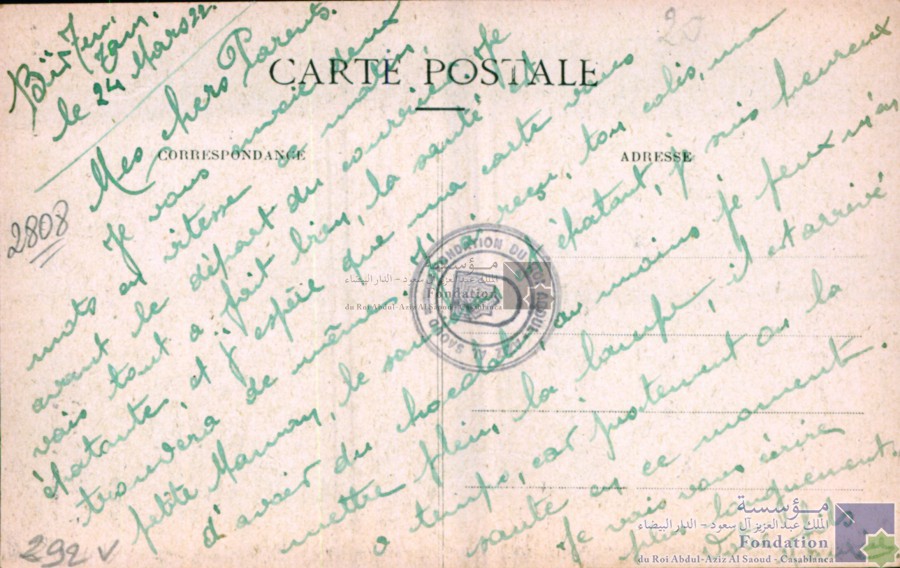 Bir Tam Tam.
le 24 Mars 22.
CARTE POSTALE
CORRESPONDANCE
ADRESSE
20
2808
292 v
Mes chers Parents.
Je vous envoie deux
mots en vitesse
avant le départ du courrier. Je
vais tout à fait bien, la santé est
épatante, et j'espère que ma carte vous
trouvera de même. J'ai reçu, ton colis, ma
petite Maman, le épatant, je suis heureux
d'avoir du chocolat, au moins je peux m'en
mettre plein la lampe, il est arrivé
à temps, car justement on la
saute en ce moment.
Je vais vous écrire
plus longuement
مؤسسة
الملك عبد العزيز آل سعود – الدار البيضاء
Fondation
du Roi Abdul-Aziz Al Saoud - Casablanca
مؤسسة
الملك عبد العزيز آل سعود – الدار البيضاء
Fondation
du Roi Abdul-Aziz Al Saoud - Casablanca
FONDATION DU ROI ABDUL-AZIZ AL SAOUD